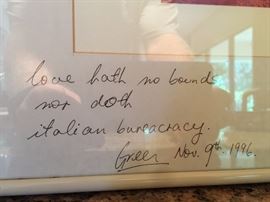 love hath no bounds
nor doth
italian bureacracy.
Greer Nov. 9th. 1996.